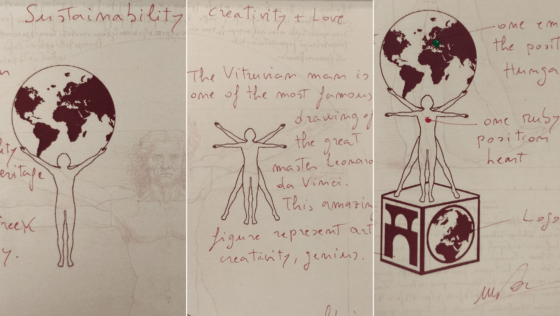 Sustainability
n
lity
eritage
reek
y.
Creativity + Love
The Vitruvian man is
one of the most famous
drawing of
the great
master Leonardo
da Vinci.
This amazing
figure represent art
creativity, genius.
one em
the posit
Hunga
one ruby
position
heart
Logo